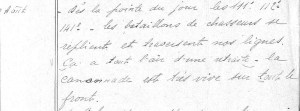 août
- dès la pointe du jour les 111e 112e
141e - les bataillons de chasseurs se
replient et traversent nos lignes.
Ça a tout l'air d'une retraite - la
canonnade est très vive sur tout le
front.